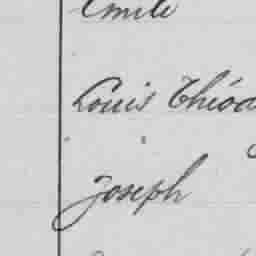 Emile
Louis Théod
Joseph